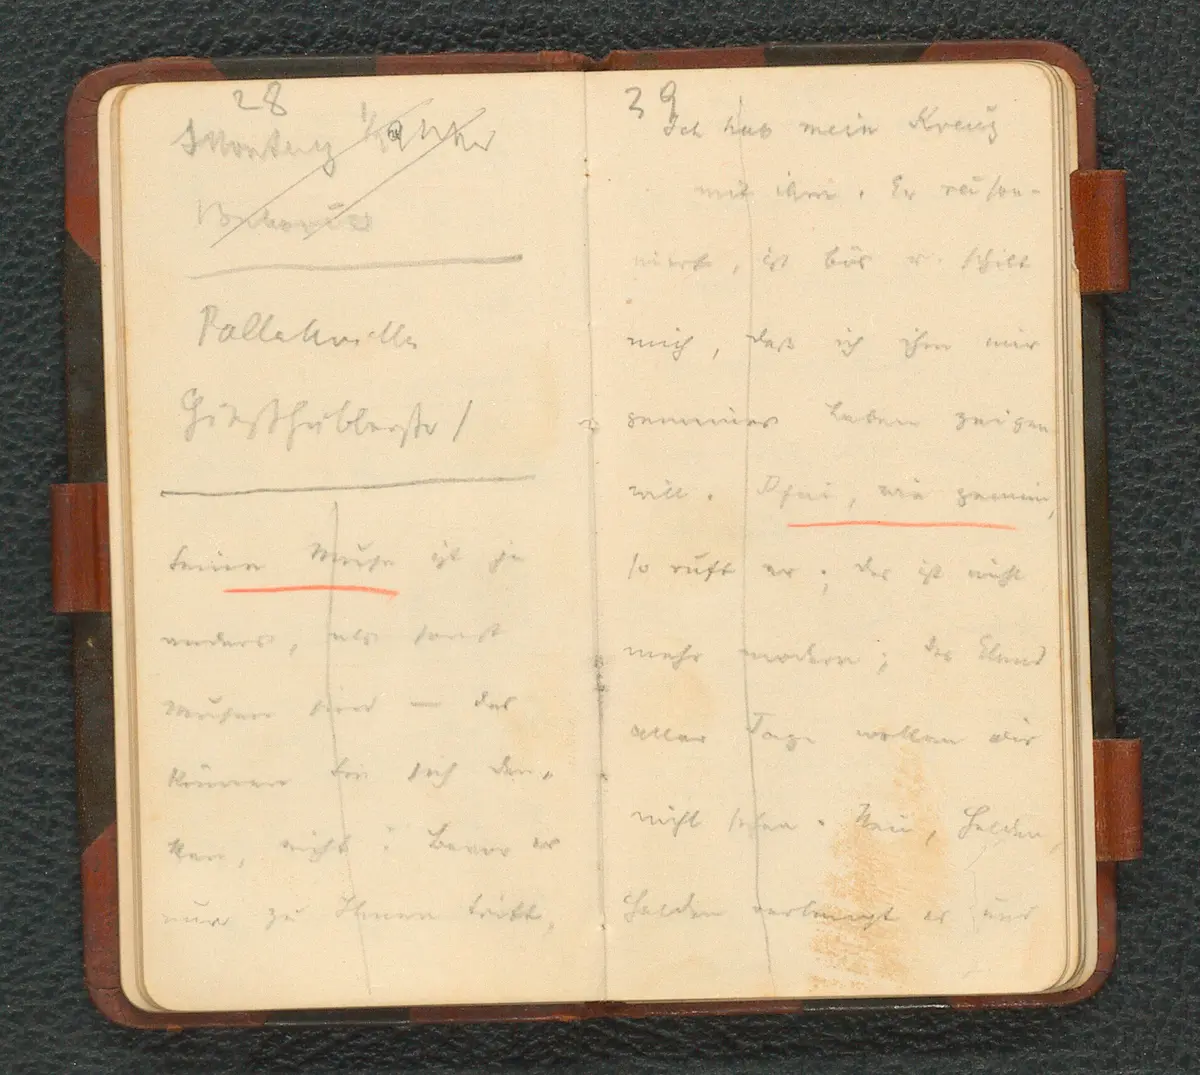 28
Montag
Pollakvilla
Gießhüblerstr /
Seine Muse ist ja
anders, als sonst
Musen sind — das
können Sie sich den-
ken, nicht? Bevor er
nur zu Ihnen tritt,
29
Ich hab mein Kreuz
mit ihm. Er räson-
niert, ist bös u. schilt
mich, daß ich ihm nur
gemeines Leben zeigen
will. Pfui, wie gemein,
so ruft er; das ist nicht
mehr modern; das Elend
aller Tage wollen wir
nicht sehen. Nein, Helden,
Helden verlangt es uns